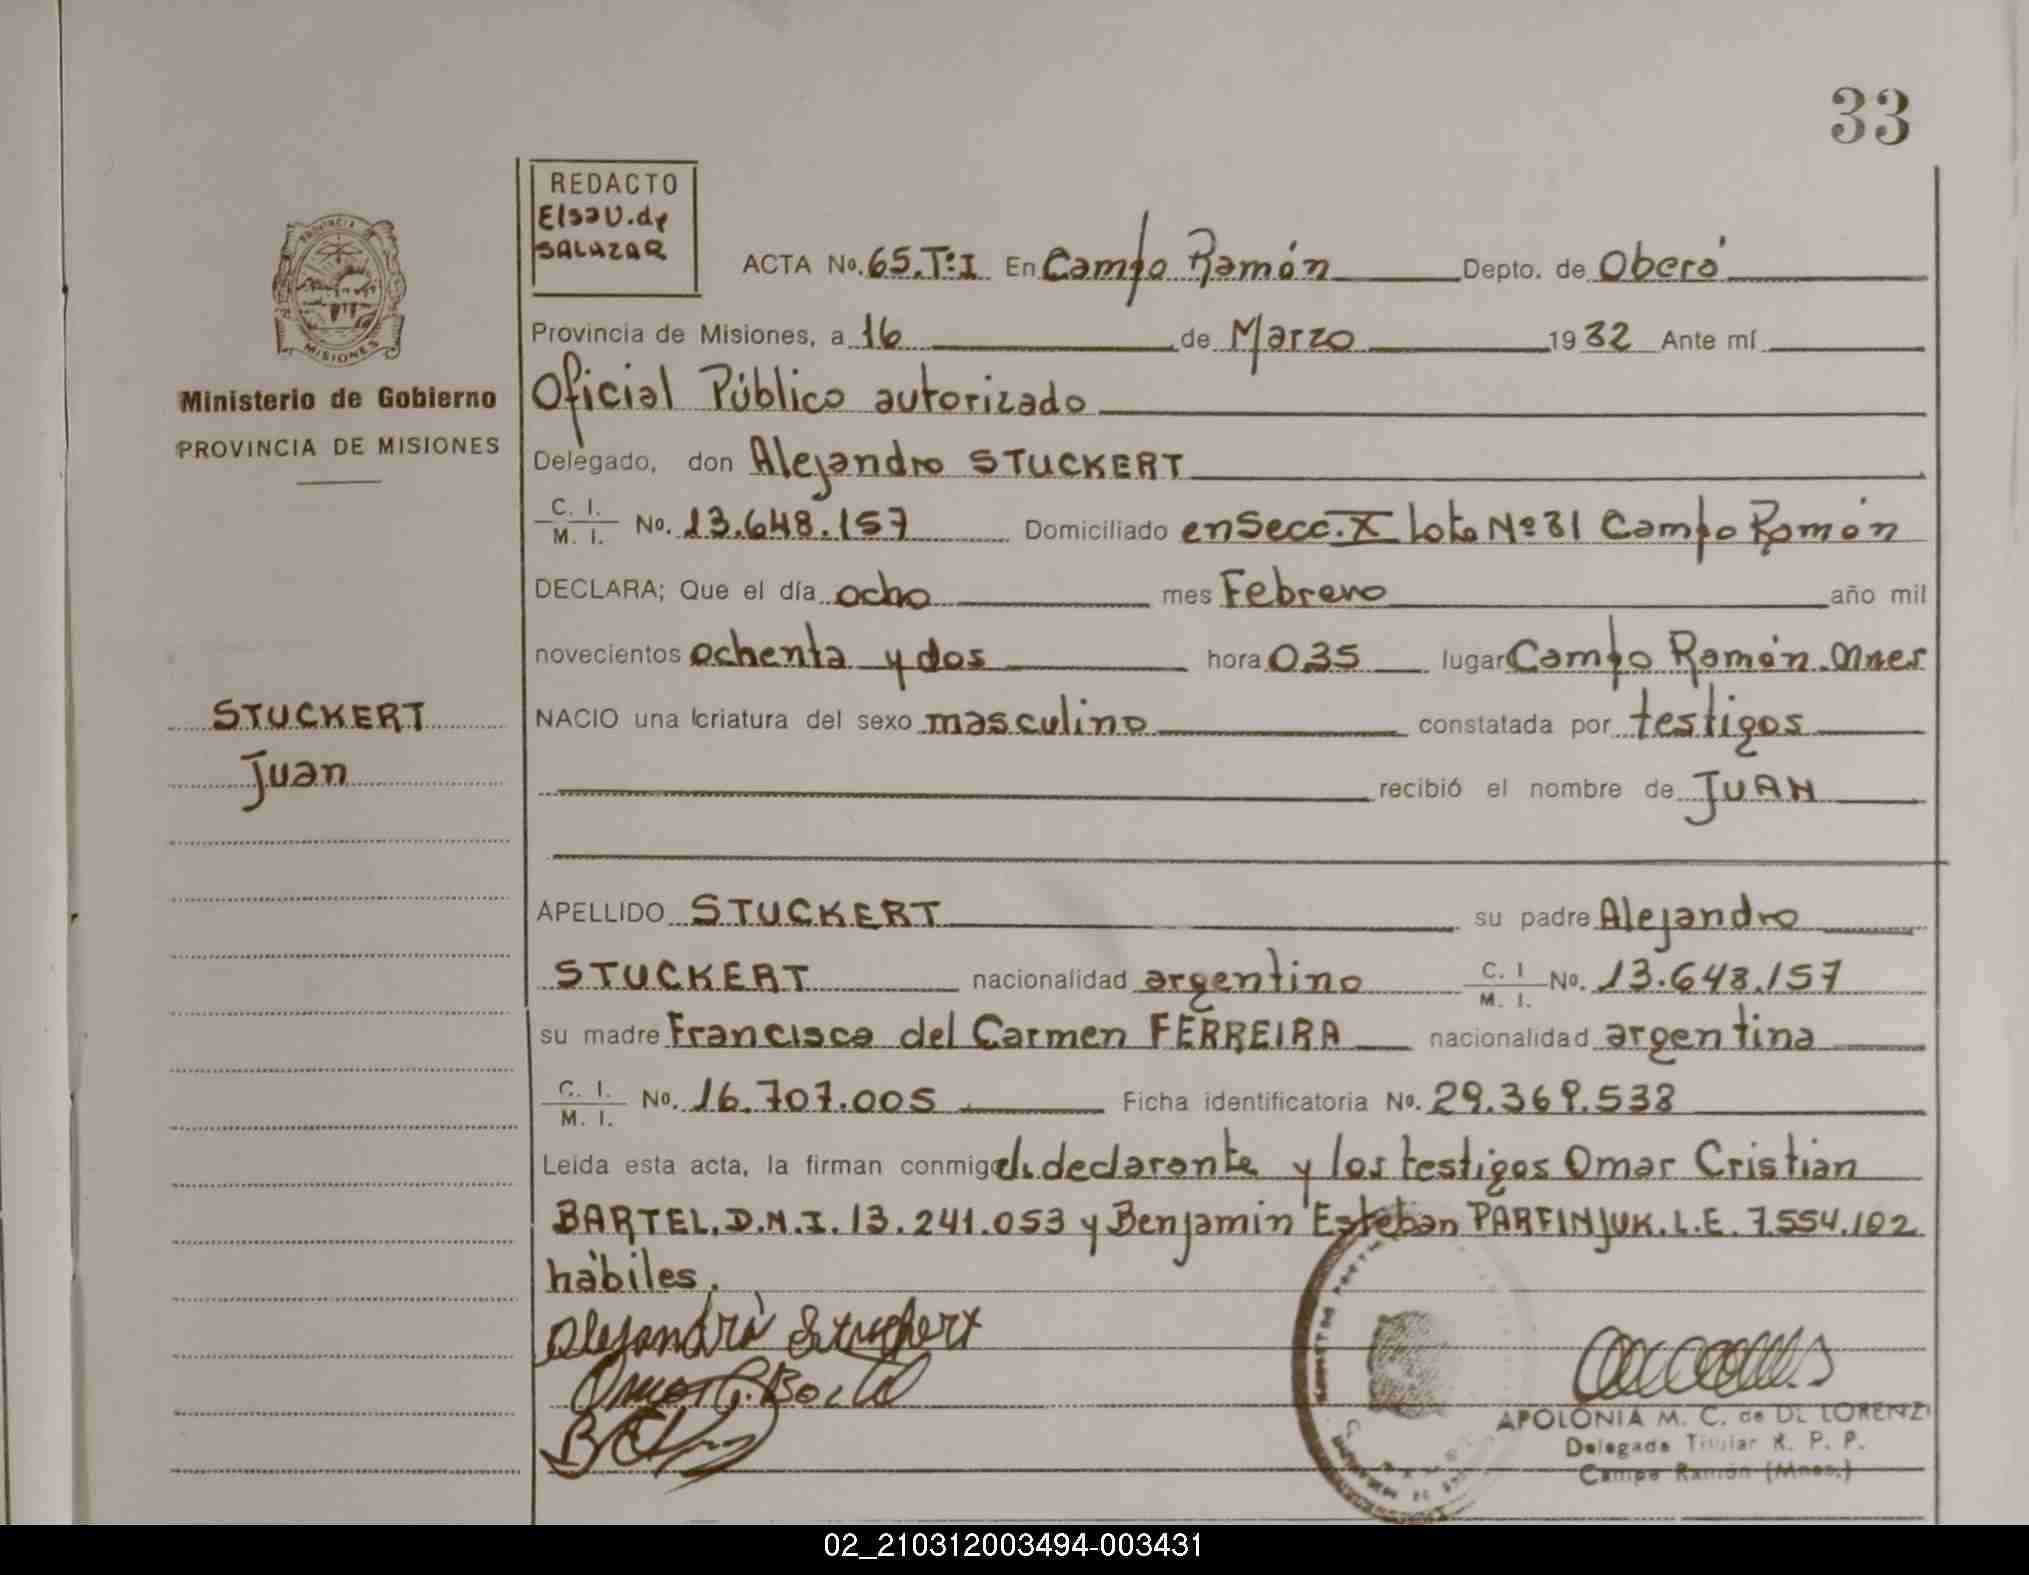 33
REDACTO
Elsa V. de
SALAZAR
PROVINCIA
MISIONES
Ministerio de Gobierno
PROVINCIA DE MISIONES
ACTA No. 65.Tº I En Campo Ramón Depto. de Oberá
Provincia de Misiones, a 16 de Marzo 1982 Ante mí
Oficial Público autorizado
Delegado, don Alejandro STUCKERT
C. I. M. I. No. 13.648.157 Domiciliado en Secc. X lote Nº 31 Campo Ramón
DECLARA; Que el día ocho mes Febrero año mil
novecientos ochenta y dos hora 0.35 lugar Campo Ramón. Mnes
STUCKERT
Juan
NACIO una criatura del sexo masculino constatada por testigos
recibió el nombre de JUAN
APELLIDO STUCKERT su padre Alejandro
STUCKERT nacionalidad argentino C. I M. I. No. 13.648.157
su madre Francisca del Carmen FERREIRA nacionalidad argentina
C. I. M. I. No. 16.707.005 Ficha identificatoria No. 29.369.538
Leída esta acta, la firman conmigo el declarante y los testigos Omar Cristian
BARTEL. D.N.I. 13.241.053 y Benjamin Esteban PARFINJUK. L.E. 7.554.102
hábiles.
Alejandro Stuckert
APOLONIA M. C. de DE LORENZI
Delegada Titular R. P. P.
Campo Ramón (Mnes.)
02_210312003494-003431